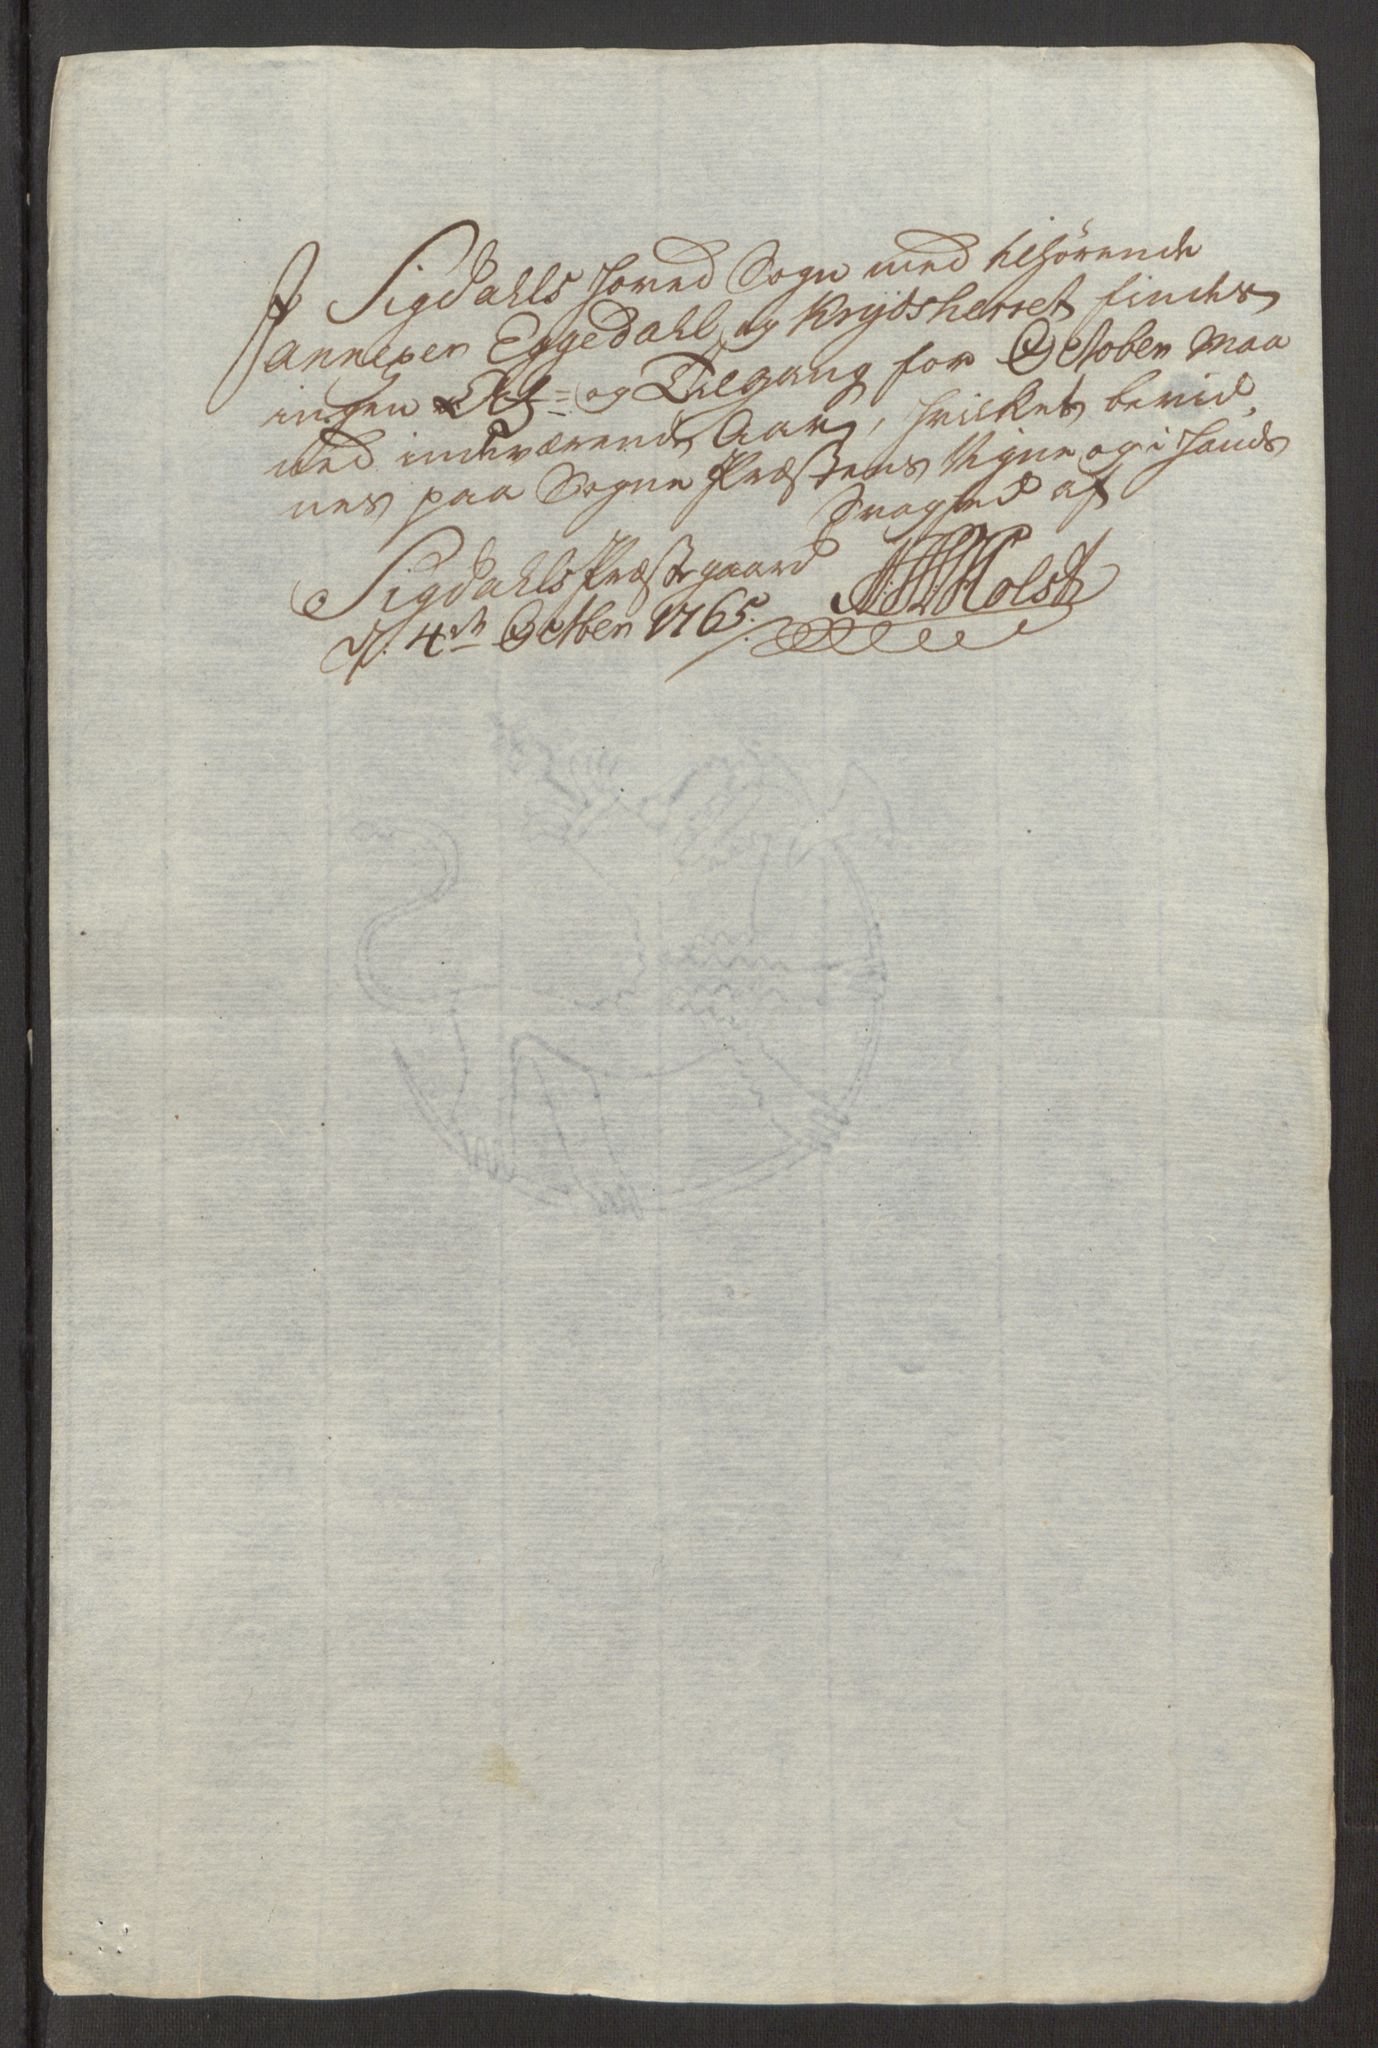 I Sigdahls Hoved Sogn med tilhörende
annexer Eggedahl og Krydsherret findes
ingen Af= og Tilgang for October Maa
ned indeværende Aar, hvilket bevid,
nes paa Sogne Præstens Vegne og i Hands
Svaghed af
Sigdahls Præstegaard
d. 4de Octber 1765.
Holst